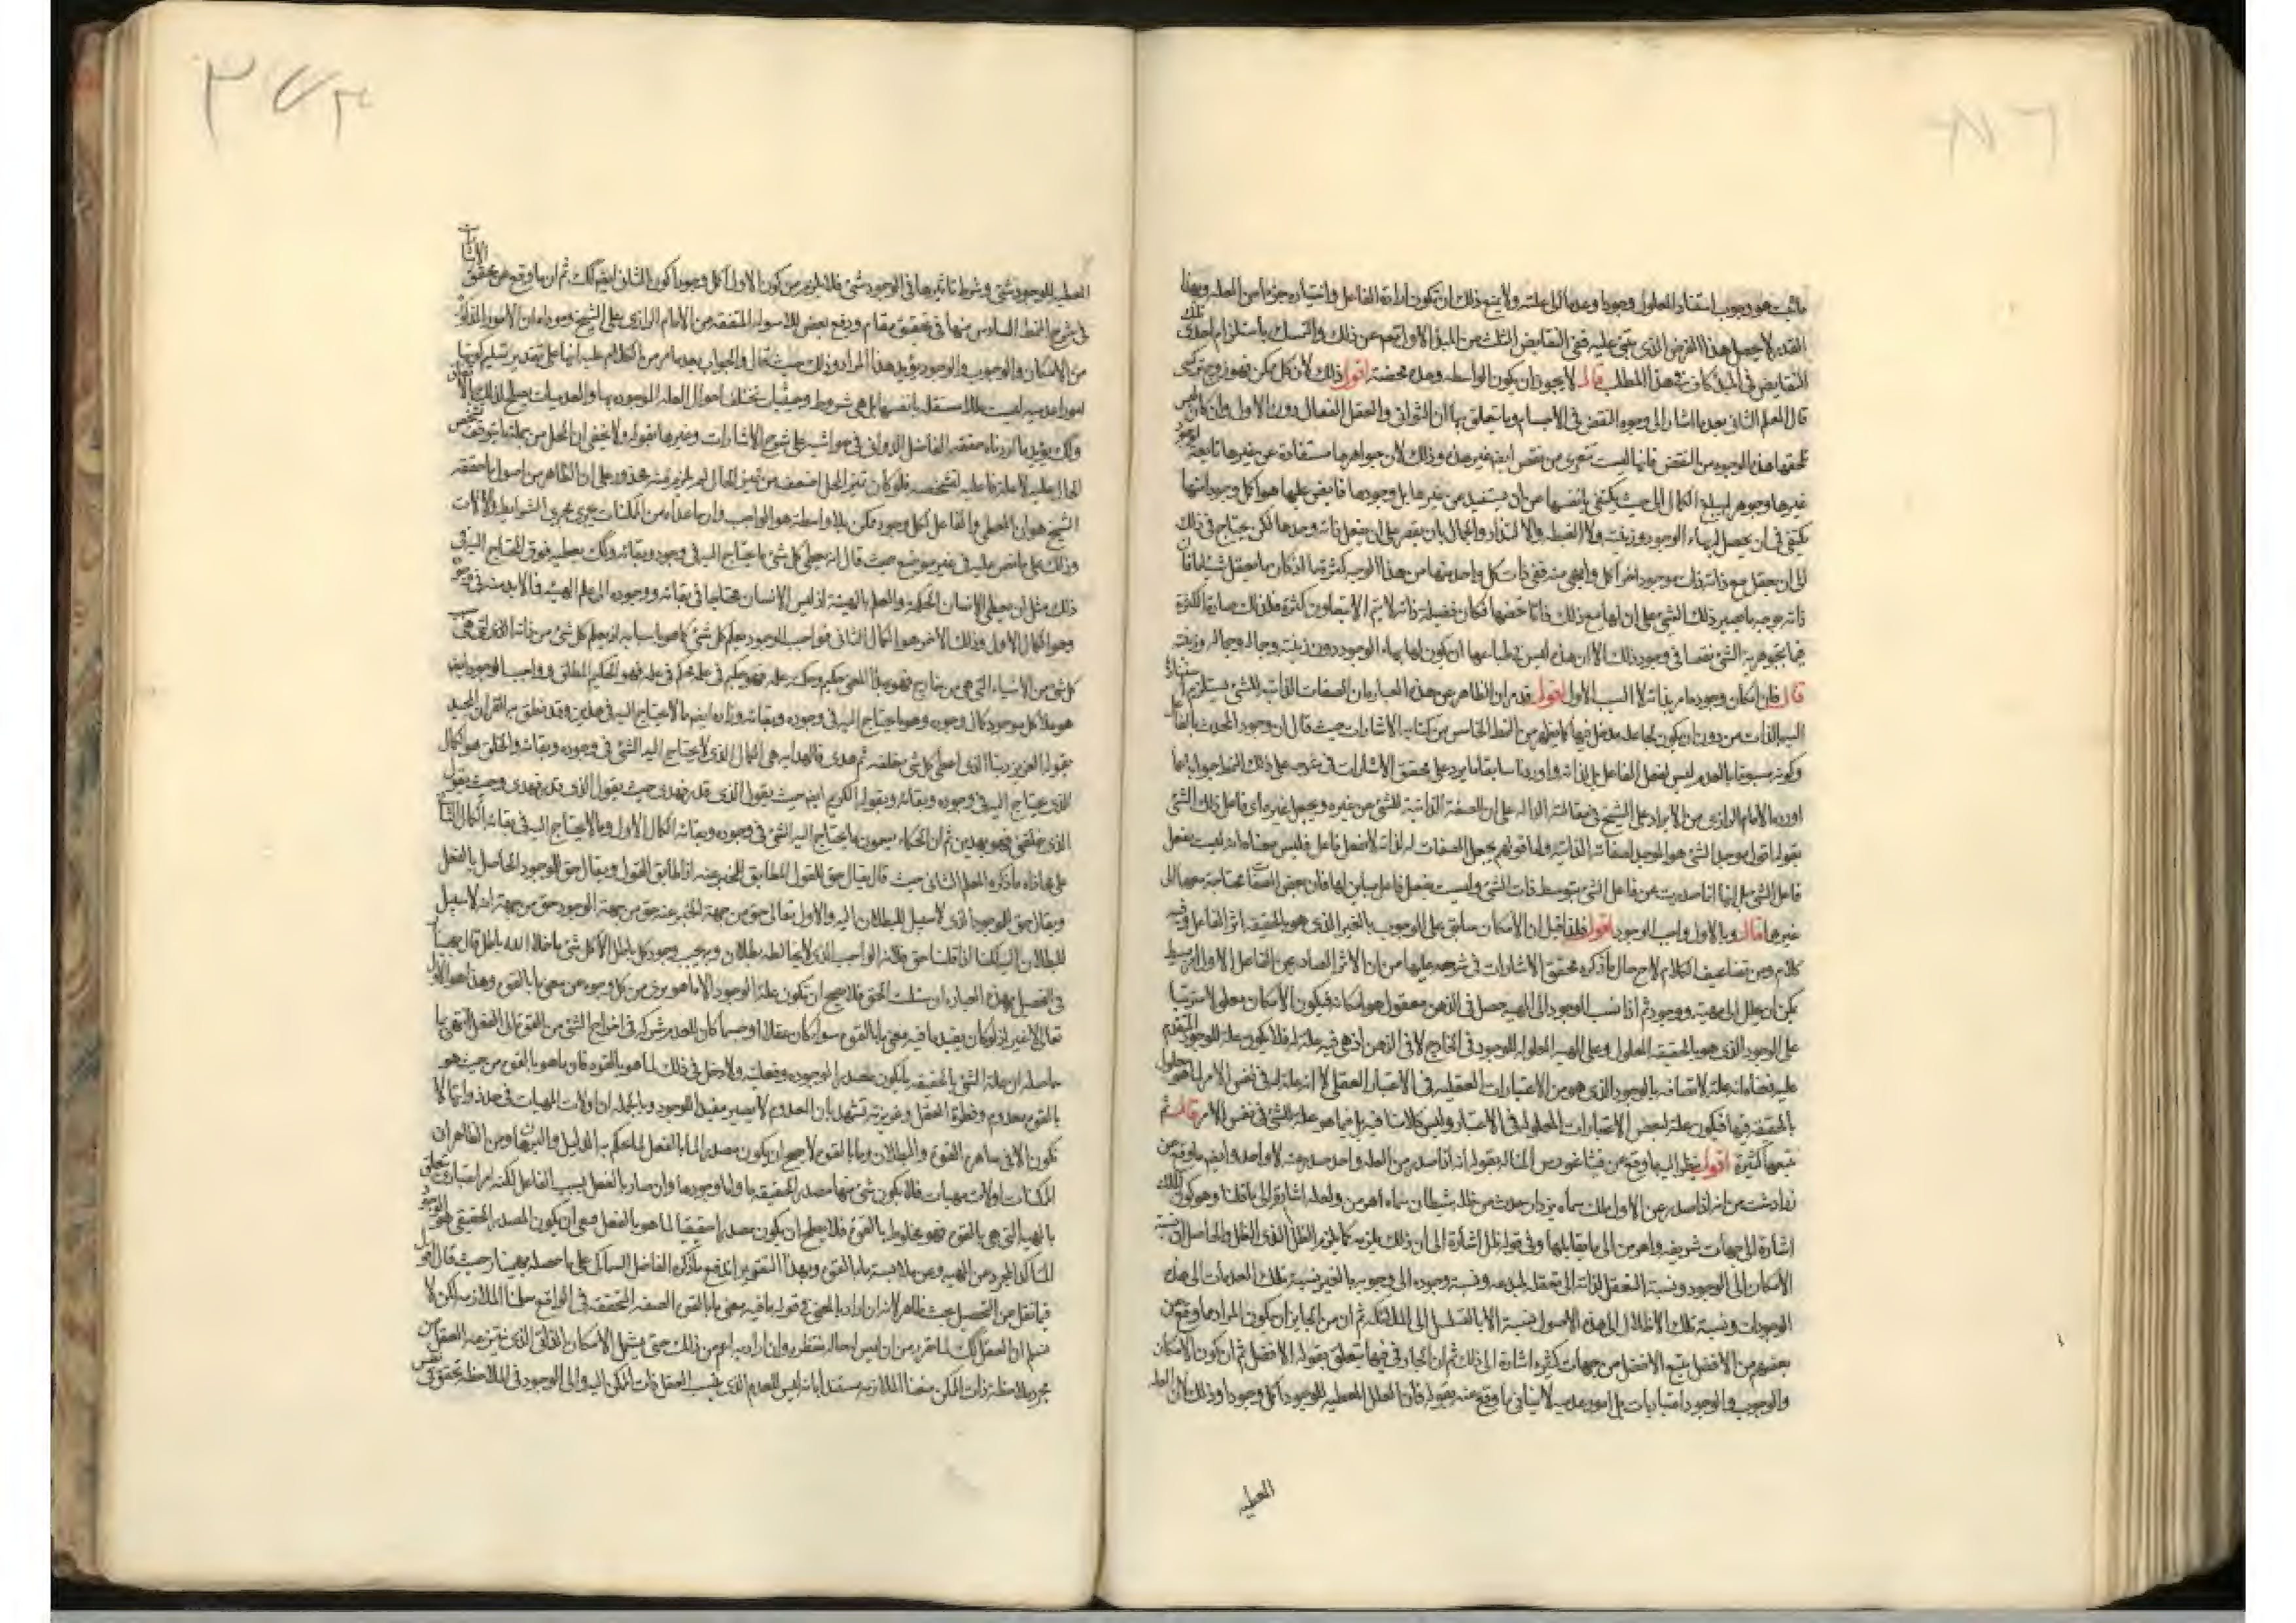 ما ثبت هو وجوب استناد المعلول وجودا وعدما الى علته ولا ينع ذلك ان تكون ارادة الفاعل واختياره جزءا من العلة وبهذا
القدر لا يحصل هذا الغرض الذى بنى عليه ففى النقايض الثلث من المبدا الاول تعم عن ذلك والتمسك باستلزام احدى تلك
النقايض فى المبدا كاف فى هذا المطلب قال لا يجوز ان يكون الواسطه وحدة محضة اقول ذلك لان كل ممكن فهو زوج تركيبى
قال المعلم الثانى بعد ما اشار الى وجوه النقض فى الاجسام وما يتعلق بها ان الثوانى والعقل الفعال دون الاول وان كان ليس
تلحقها هذه الوجوه من النقص فانها ليست تتعرى من نقص ايضا غير هذه وذلك لان جواهرها مستفادة عن غيرها تابعة لوجود
غيرها وجوهرها لم يبلغ الكمال الى حيث يكتفى بانفسها عن ان يستفيد من غيرها بل وجودها فايض عليها هو اكمل وجود منها
يكتفى فى ان يحصل لها بهاء الوجود وزينته ولا الغبطة والالتذاذ والجمال بان يقصر على ان يعقل ذاته وحدها لكن يحتاج فى ذلك
الى ان يعقل مع ذاته ذات موجود اخر اكمل وابهى منه ففى ذات كل واحد منها من هذا الوجه كثرة ما اذ كان ما يعقل شيئا ما فان
ذاته من وجه ما يصير ذلك الشئ على ان لها مع ذلك ذاتا تخصها فكان فضيلة ذاته لا يتم الا بتعاون كثرة ما فلذلك صارت الكثرة
فيما يتجوهر به الشئ نقصا فى وجود ذلك الا ان هذه ليس فى طباعها ان يكون لها بهاء الوجود دون زينته وجماله وجلاله وزينته
قال فان امكان وجوده امر بذاته لا السبب الاول اقول قد مر ان الظاهر من هذه العبارة ان الصفات الذاتية للشئ يستلزم استنادها
اليه بالذات من دون ان يكون لجاعله مدخل فيها كما يظهر من النمط الخامس من كتاب الاشارات حيث قال ان وجود المحدث بالفاعل
وكونه مسبوقا بالعدم ليس لفعل الفاعل بل لذاته واوردنا سابقا ما يرد على محقق الاشارات فى شرحه على ذلك النمط جوابا لما
اورده الامام الرازى من الايراد على الشيخ فى مقالته الدالة على ان الصفة الذاتية للشئ من غيره ويجعل غيره اى فاعل ذلك الشئ
بقوله اقول موجد الشئ هو الموجد لصفاته الذاتيه واما قولهم يجعل الصفات له لذاته لا لفعل فاعل فليس معناه انه ليست بفعل
فاعل الشئ بل انها انما صدرت عن فاعل الشئ بتوسط ذات الشئ وليست بفعل فاعل مباين لها فان بعض الصفات محتاجة معها الى
غيرها قال وبالاول واجب الوجود اقول فلما قيل ان الامكان سابق على الوجوب بالغير الذى هو بالحقيقة اثر الفاعل وفيه
كلام ومن تضاعيف الكلام لاح حال ما ذكره محقق الاشارات فى شرحه عليها من ان الاثر الصادر عن الفاعل الاول البسيط
يمكن ان يحلل الى مهية ووجود ثم اذا نسب الوجود الى المهية حصل فى الذهن معقول هو امكانه فيكون الامكان معلولا مترتبا
على الوجود الذى هو بالحقيقه المعلول وعلى المهية المعلولة للوجود فى الخارج لا فى الذهن اذ هى فيه علة له فلا يكون علة للوجود المتقدم
عليه فمعناه انه علة لاتصافه بالوجود الذى هو من الاعتبارات العقليه فى الاعتبار العقلى لا انه علة له فى نفس الامر لما هو معلول
بالحقيقه فيها فيكون علة لبعض الاعتبارات المعلوله فى الاعتبار وليس كلامنا فيه بل فيما هو علة للشئ فى نفس الامر قال ثم
يتبعها كثيرة اقول ينظر اليه ما وقع عن فيثاغورس المتاله بقوله اذا صدر من العلة واحد صدر منه لا واحد وايضا ما وقع عن
زرادشت من انه اذا صدر عن الاول ملك سماه يزدان حدث من ظله شيطان سماه اهرمن ولعله اشارة الى ما قلنا وهو كون الملك
اشارة الى جهات شريفه واهرمن الى ما يقابلها وفى قوله ظل اشارة الى ان ذلك يلزمه كما يلزم الظل لذى الظل والحاصل ان نسبة
الامكان الى الوجود ونسبة التعقل لذاته الى تعقله لمبدعه ونسبة وجوده الى وجوبه بالغير نسبة تلك العدميات الى هذه
الوجودات ونسبة تلك الاظلال الى هذه الاصول نسبة الابالسة الى الملائكة ثم ان من الجايز ان يكون المراد مما وقع عن
بعضهم من الافضل يتبع الافضل من جهات كثيرة اشارة الى ذلك ثم ان الجار فى فيها يتعلق بقوله الافضل ثم ان كون الامكان
والوجوب والوجود اعتباريات بل امور عدميه لا ينافى ما وقع منه بقوله فان العلل المعطيه للوجود اكمل وجودا وذلك لان العلة
المعطيه
المعطيه للوجود شئ وشروط تاثيرها فى الوجود شئ فلا يلزم من كون الاول اكمل وجودا كون الثانى ايضا كك ثم ان ما وقع عن محقق الاشارات
فى شرح النمط السادس منها فى تحقيق مقام ودفع بعض الاسولة المتفقه من الامام الرازى على الشيخ ومراده ان الامور المذكورة
من الامكان والوجوب والوجود يؤيد هذا المراد وذلك حيث قال والجواب بعد ما مر من الكلام عليه انها على تقدير تسليم كونها
امورا عدميه ليست عللا مستقله بانفسها بل هى شروط وحيثيات تختلف احوال العلة الموجوده بها والعدميات يصلح لذلك بالاتفاق
وكك يؤيد ما اردناه حققه الفاضل الدوانى فى حواشيه على شرح الاشارات وغيرها بقوله ولا يخفى ان المحل من جملتها يتوقف تشخص
الحال عليه لا علة فاعليه لتشخصه فلو كان تعين المحل اضعف من تعين الحال لم يلزم منه محذور على ان الظاهر من اصول ما حققه
الشيخ هو ان المعطى والفاعل لكل وجود ممكن بلا واسطة هو الواجب وان ما عداه من الممكنات يجرى مجرى الشرايط والالات
وذلك على ما نص عليه فى غير موضع حيث قال انه يعطى كل شئ ما يحتاج اليه فى وجوده وبقائه وكك يعطيه فوق المحتاج اليه فى
ذلك مثل ان يعطى الانسان الحكمة والعلم بالهيئة اذ ليس الانسان محتاجا فى بقائه ووجوده الى علم الهيئه فما لا بد منه فى وجوده
وهو الكمال الاول وذلك الاخر هو الكمال الثانى فواجب الوجود يعلم كل شئ كما هو باسبابه اذ يعلم كل شئ من ذاته الذى هى سبب
كل شئ من الاشياء التى هى من خارج فهو بهذا المعنى حكيم وحكمته علمه فهو حكيم فى علمه محكم فى فعله فهو الحكيم المطلق وواجب الوجود ايضا
هو علة كل موجود كمال وجوده وهو ما يحتاج اليه فى وجوده وبقائه وزاده ايضا ما لا يحتاج اليه فى هذين وقد نطق به القران المجيد
بقوله العزيز ربنا الذى اعطى كل شئ خلقه ثم هدى فالهدايه هى الكمال الذى لا يحتاج اليه الشئ فى وجوده وبقائه والخلق هو الكمال
الذى يحتاج اليه فى وجوده وبقائه وبقوله الكريم ايضا حيث يقول الذى قدر فهدى حيث يقول الذى قدر فهدى وحيث يقول
الذى خلقنى فهو يهدين ثم ان الحكماء يسمون ما يحتاج اليه الشئ فى وجوده وبقائه الكمال الاول وما لا يحتاج اليه فى بقائه الكمال الثانى
على محاذاة ما ذكره المعلم الثانى حيث قال يقال حق للقول المطابق للمخبر عنه اذا طابق القول ويقال حق للوجود الحاصل بالفعل
ويقال حق للموجود الذى لا سبيل للبطلان اليه والاول تعالى حق من جهة المخبر عنه حق من جهة الوجود حق من جهة انه لا سبيل
للبطلان اليه لكنا اذا قلنا حق فلانه الواجب الذى لا يخالطه بطلان وبه يجب وجود كل باطل الا كل شئ ما خلا الله باطل قال بهمنيار
فى التحصيل بهذه العباره ان سئلت الحق فلا يصح ان تكون علة الوجود الا ما هو برئ من كل وجه عن معنى ما بالقوه وهذا هو الاول
تعالى لا غير اذ لو كان يفيد ما فيه معنى ما بالقوه سواء كان عقلا او جسما كان للعدم شركة فى اخراج الشئ من القوة الى الفعل انتهى ما
حاصله ان علة الشئ بالحقيقه ما يكون مصدرا لوجوده وفعليته ولا دخل فى ذلك لما هو بالقوه فان ما هو بالقوه من حيث هو
بالقوه معدوم وفطرة العقل وغريزته تشهد بان المعدوم لا يصير مفيدا للوجود وبالجمله ان اولات المهيات فى حد ذواتها لا
تكون الا فى ساهرة القوة والبطلان وما بالقوه لا يصح ان يكون مصدرا لما بالفعل لما يحكم به الدليل والبرهان ومن الظاهر ان
الممكنات اولات مهيات فلا يكون شئ منها مصدرا بالحقيقه ما ولها وجودها وان صار بالفعل بسبب الفاعل لكنه امر اعتبارى متعلق
بالمهيه التى هى بالقوه فهو مخلوط بالقوة فلا يصلح ان يكون مصدرا حقيقيا لما هو بالفعل فبقى ان يكون المصدر الحقيقى هو الوجود
المتاكد المجرد من المهيه وعن ملابسة ما بالقوه وبهذا التقرير اندفع ما ذكره الفاضل السماكى على ما حصله بهمنيار حيث قال اقول
فيما نقل من التحصيل بحث ظاهر لانه ان اراد بالمعنى فى قوله ما فيه معنى ما بالقوه الصفه المتحققه فى الواقع سلمنا الملازمه لكن لا
نسلم ان العقل كك لما تقرر من ان ليس له حالة منتظره وان اراد به اعم من ذلك حتى يشمل الامكان الذاتى الذى ينتزعه العقل من
مجرد ملاحظة ذات الممكن منعنا الملازمه مستندا بانه ليس للعدم الذى ينسب العقل ذات الممكن اليه والى الوجود فى الملاحظة تحقق فى نفس